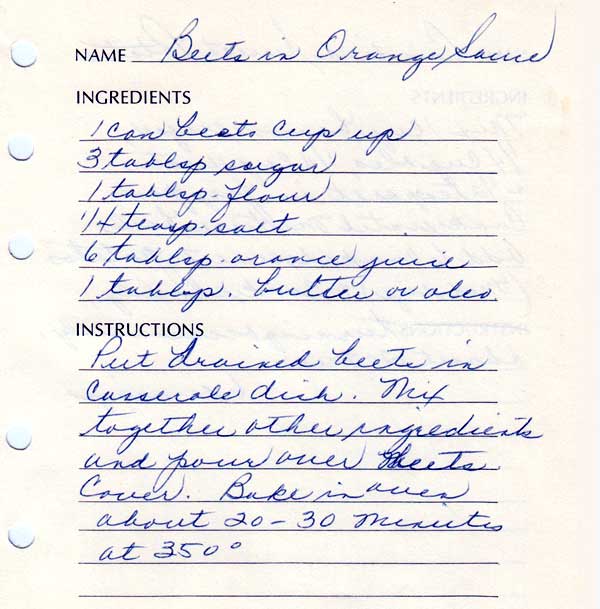 NAME Beets in Orange Sauce
INGREDIENTS
1 can beets cup up
3 tablsp sugar
1 tablsp. flour
1/4 teasp. salt
6 tablsp. orange juice
1 tablsp. butter or oleo.
INSTRUCTIONS
Put drained beets in
casserole dish. Mix
together other ingredients
and pour over beets.
Cover. Bake in oven
about 20-30 minutes
at 350°